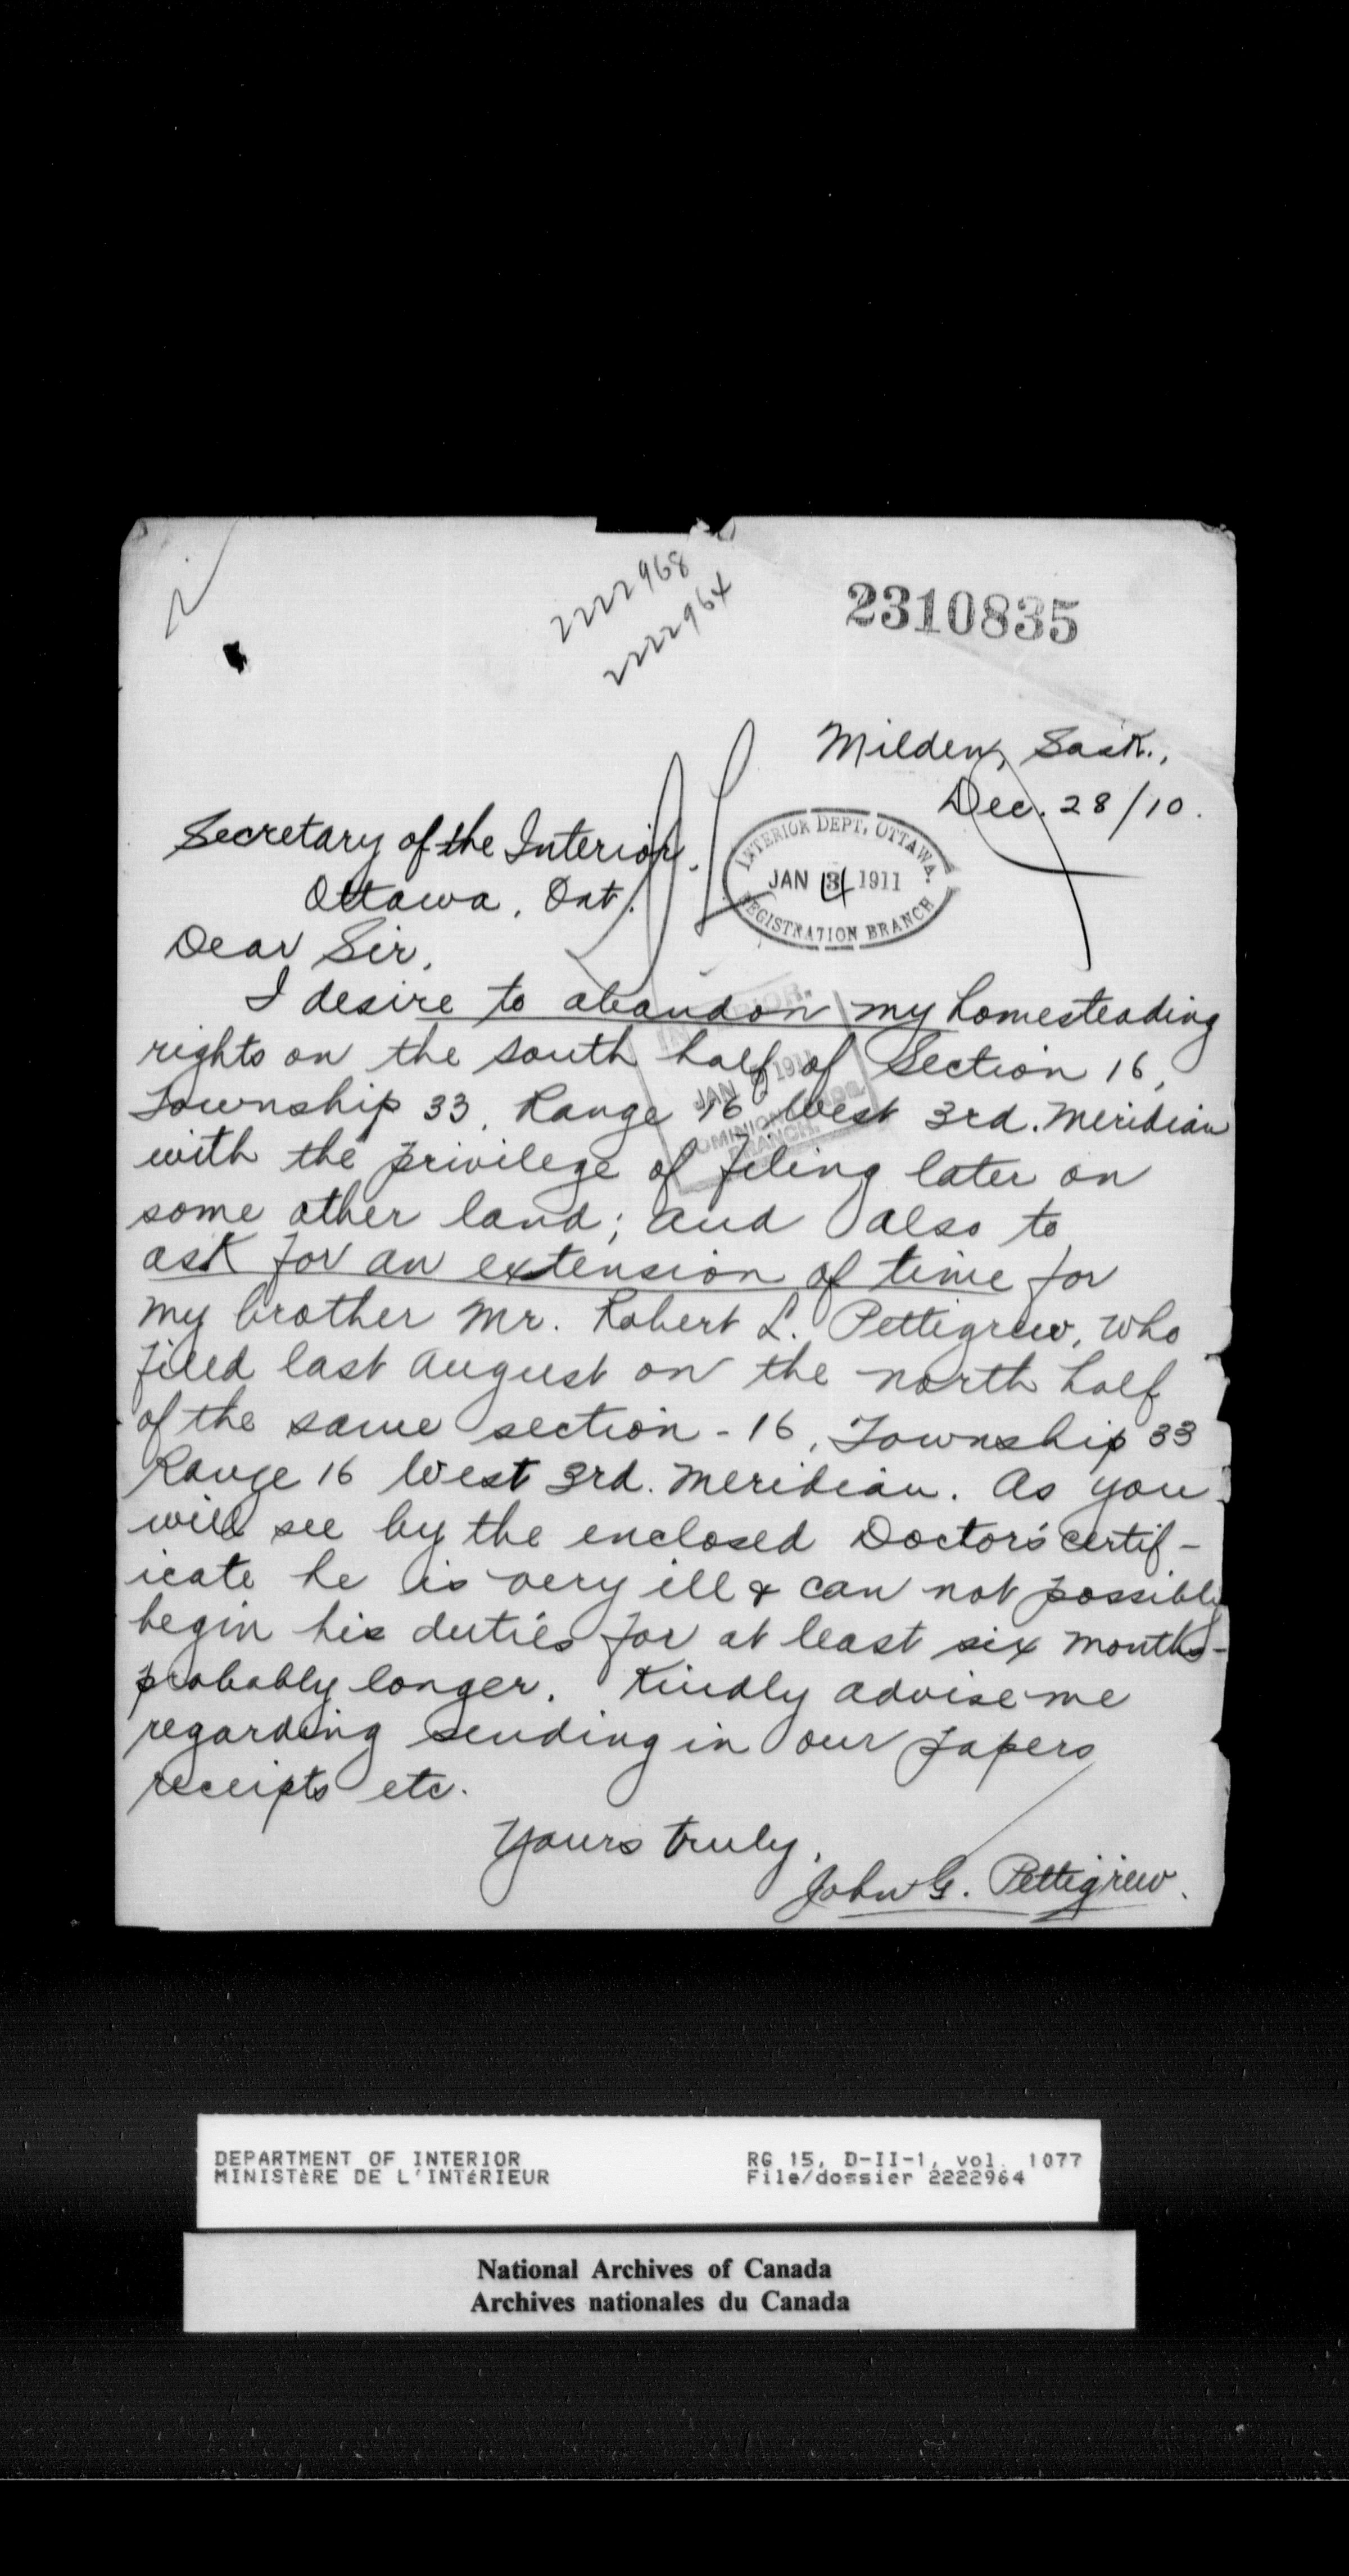 2222968
2222964
2310835
Milden, Sask.,
Dec. 28/10.
Secretary of the Interior.
Ottawa, Ont.
INTERIOR DEPT, OTTAWA.
JAN 4 1911
REGISTRATION BRANCH
Dear Sir,
I desire to abandon my homesteading
rights on the south half of Section 16,
Township 33, Range 16 West 3rd. Meridian
with the privilege of filing later on
some other land; and also to
ask for an extension of time for
my brother Mr. Robert L. Pettigrew, who
filed last August on the north half
of the same section - 16, Township 33
Range 16 West 3rd. Meridian. As you
will see by the enclosed Doctor's certif-
icate he is very ill & can not possibly
begin his duties for at least six months-
probably longer. Kindly advise me
regarding sending in our papers
receipts etc.
Yours truly,
John G. Pettigrew.
DEPARTMENT OF INTERIOR
MINISTèRE DE L'INTéRIEUR
RG 15, D-II-1, vol. 1077
File/dossier 2222964
National Archives of Canada
Archives nationales du Canada